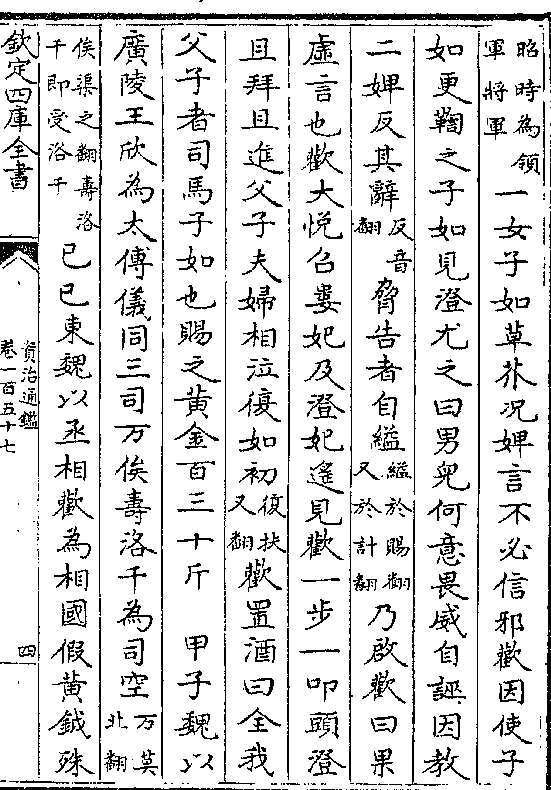 昭時為領
軍將軍
一女子如草芥况婢言不必信邪歡因使子
如更鞫之子如見澄尤之曰男兒何意畏威自誣因教
二婢反其辭
反音
翻
脅告者自縊
縊於賜翻
又於計翻
乃啟歡曰果
虛言也歡大悅召婁妃及澄妃遙見歡一步一叩頭澄
且拜且進父子夫婦相泣復如初
復扶
又翻
歡置酒曰全我
父子者司馬子如也賜之黃金百三十斤　甲子魏以
廣陵王欣為太傅儀同三司万俟壽洛干為司空
万莫
北翻
俟渠之翻壽洛
干即受洛干
己巳東魏以丞相歡為相國假黃鉞殊
欽定四庫全書
資治通鑑
卷一百五十七
四